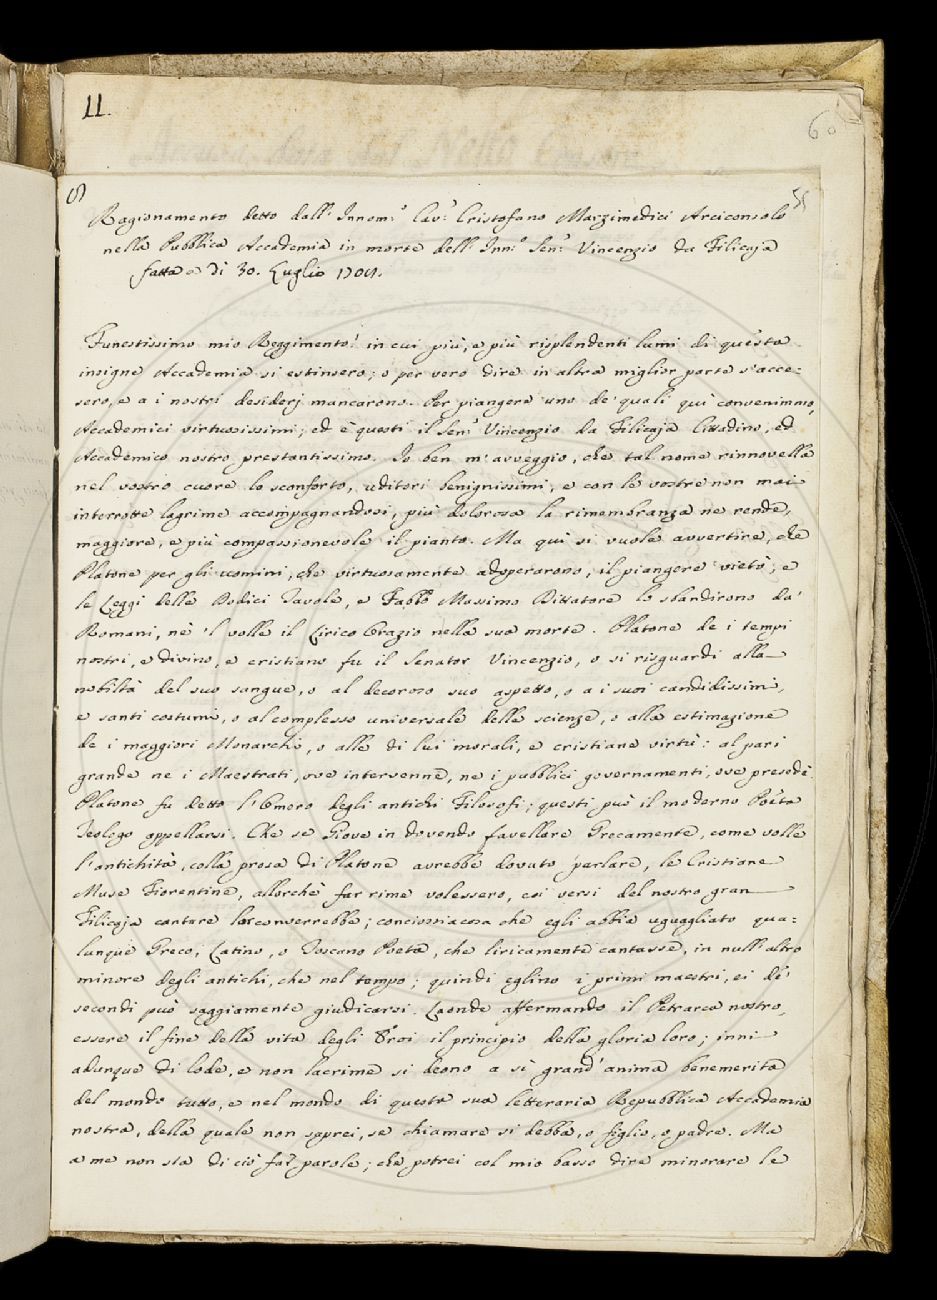 11.
60
55
Ragionamento detto dall' Innom.º Cav.º Cristofano Marzimedici Arciconsolo
nella Pubblica Accademia in morte dell' Inn.º Sen.º Vincenzio da Filicaja
fatta a dì 30. Luglio 1708.
Funestissimo mio Reggimento! in cui più, e più risplendenti lumi di questa
insigne Accademia si estinsero; o per vero dire in altra miglior parte s'acce=
sero, e a i nostri desiderj mancarono. Per piangere uno de' quali qui convenimmo,
Accademici virtuosissimi; ed è questi il Sen.º Vincenzio da Filicaja Cittadino, ed
Accademico nostro prestantissimo. Io ben m'avveggio, che tal nome rinnovella
nel vostro cuore lo sconforto, uditori benignissimi, e con le vostre non mai
interrotte lagrime accompagnandosi, più dolorosa la rimembranza ne rende,
maggiore, e più compassionevole il pianto. Ma quì si vuole avvertire, che
Platone per gli uomini, che virtuosamente adoperarono, il piangere vietò; e
le Leggi delle Dodici Tavole, e Fabio Massimo Dittatore lo sbandirono da'
Romani, nè 'l volle il Lirico Orazio nella sua morte. Platone de i tempi
nostri, e divino, e cristiano fu il Senator Vincenzio, o si risguardi alla
nobiltà del suo sangue, o al decoroso suo aspetto, o a i suoi candidissimi,
e santi costumi, o al complesso universale delle scienze, o alla estimazione
de i maggiori Monarchi, o alle di lui morali, e cristiane virtù: al pari
grande ne i Maestrati, ove intervenne, ne i pubblici governamenti, ove presedè
Platone fu detto l'Omero degli antichi Filosofi; questi può il moderno Poeta
Teologo appellarsi. Che se Giove in dovendo favellare Grecamente, come volle
l'antichità, colla prosa di Platone avrebbe dovuto parlare, le Cristiane
Muse Fiorentine, allorchè far rime volessero, coi versi del nostro gran
Filicaja cantare lor converrebbe; conciossiacosa che egli abbia uguagliato qua=
lunque Greco, Latino, o Toscano Poeta, che liricamente cantasse, in null'altro
minore degli antichi, che nel tempo; quindi eglino i primi maestri, ei de'
secondi può saggiamente giudicarsi. Laonde affermando il Petrarca nostro,
essere il fine della vita degli Eroi il principio della gloria loro; inni
adunque di lode, e non lacrime si deono a sì grand'anima benemerita
del mondo tutto, e nel mondo di questa sua letteraria Repubblica Accademia
nostra, della quale non saprei, se chiamare si debba, o figlio, o padre. Ma
a me non sta di ciò far parole; che potrei col mio basso dire minorare le